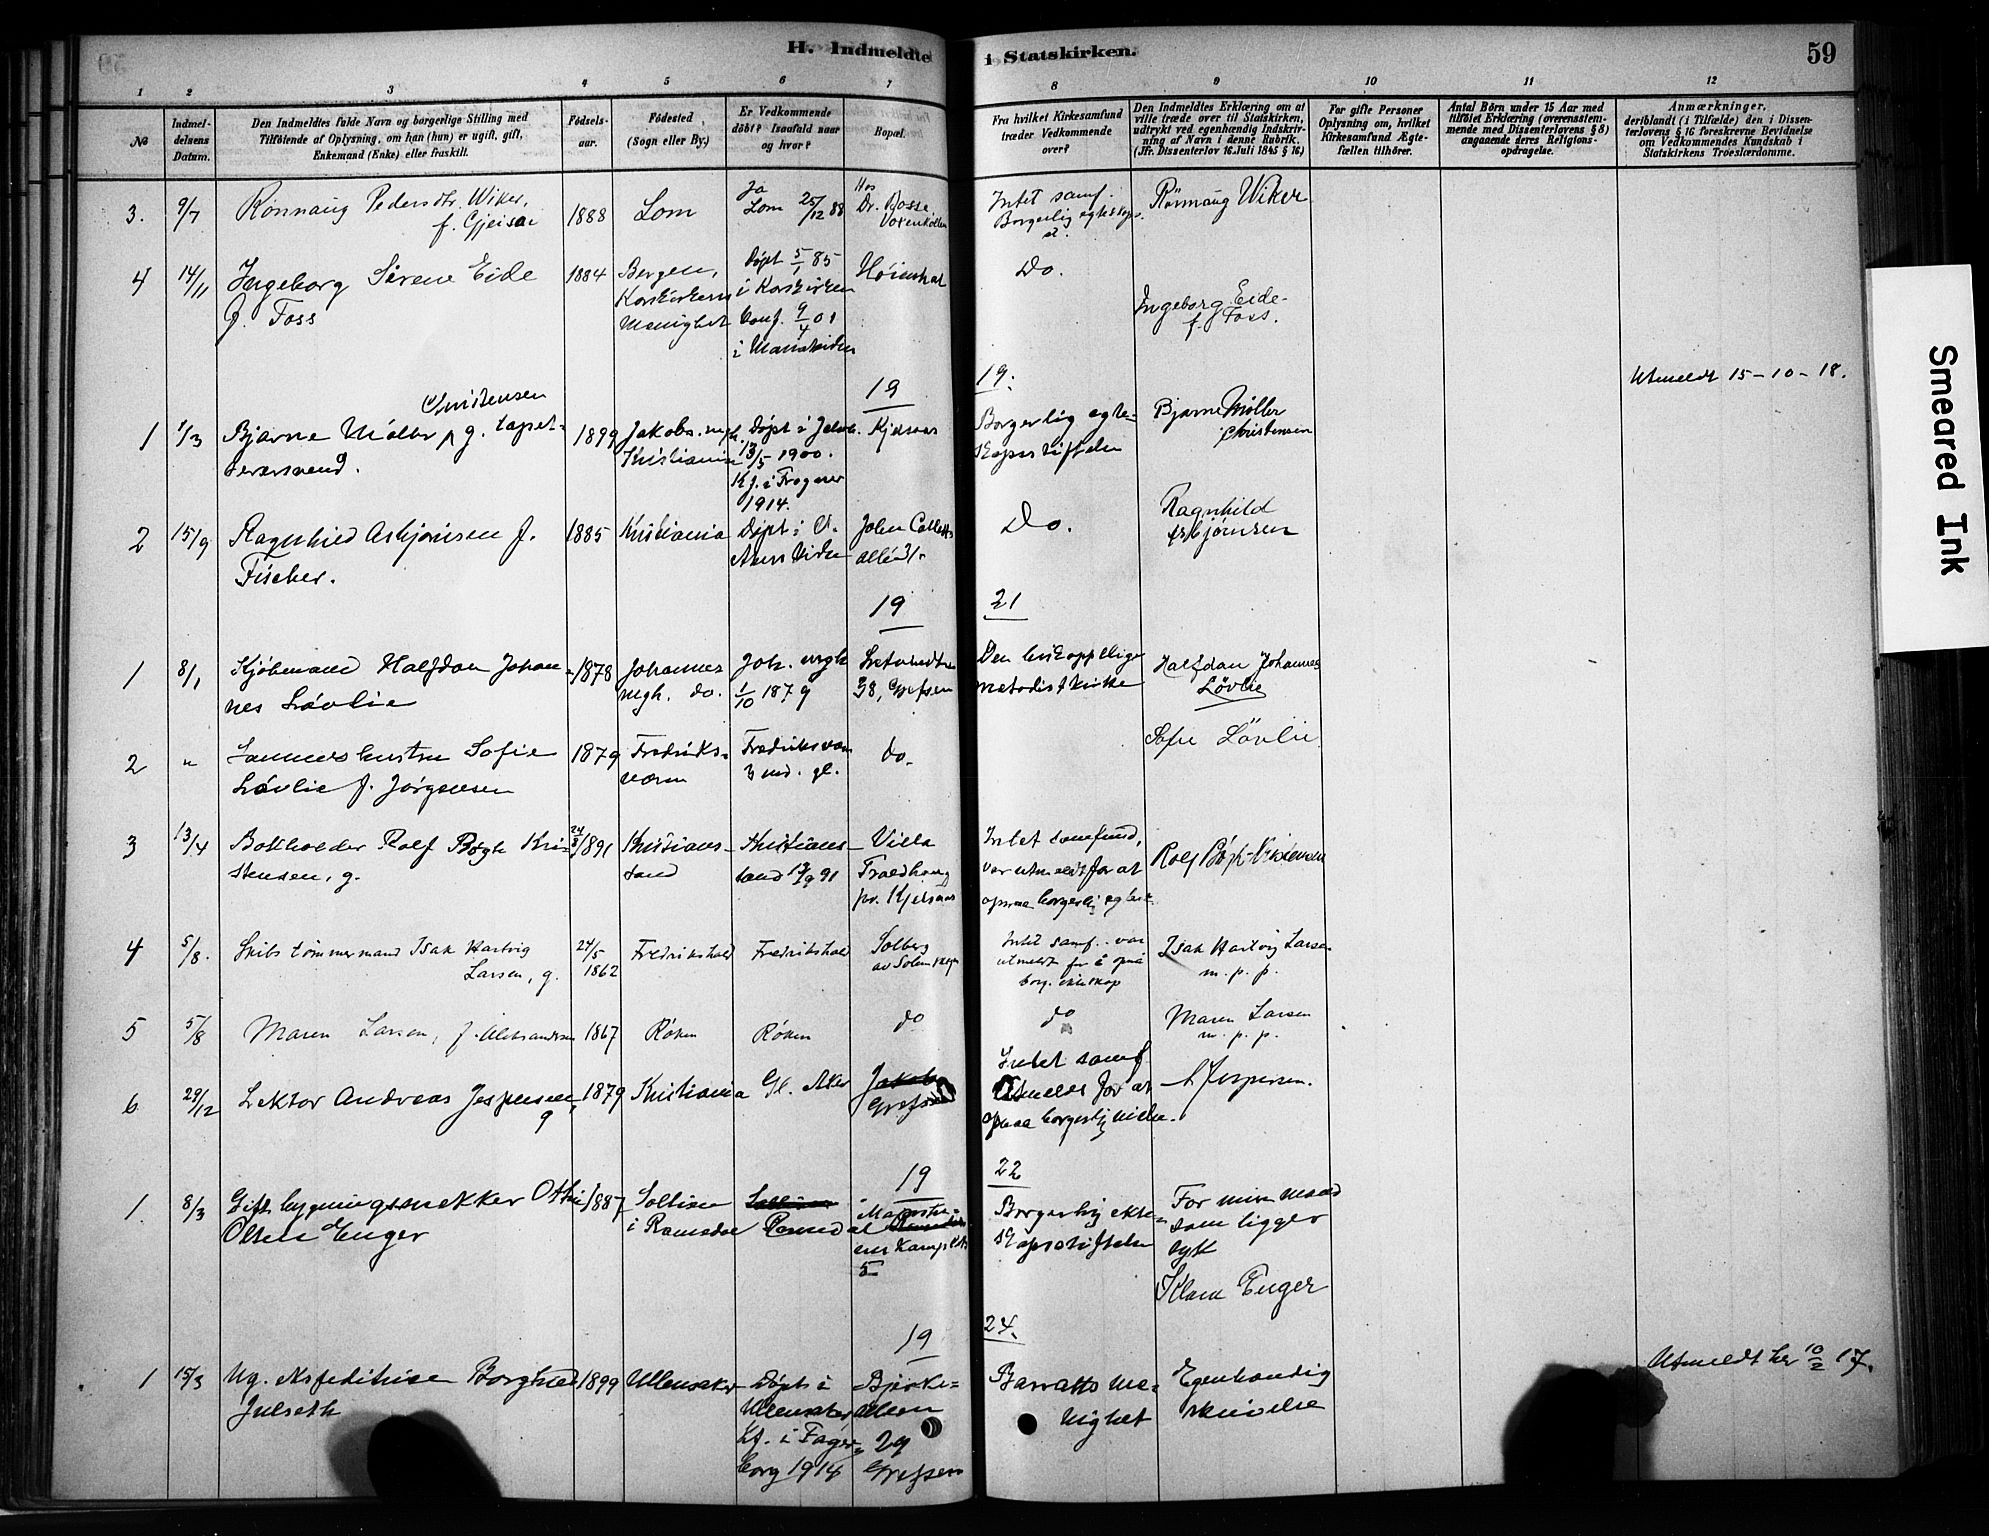 H. Indmeldte i Statskirken.
59
1 2 3 4 5 6 7 8 9 10 11 12
№
Indmel-
delsens
Datum.
Den Indmeldtes fulde Navn og borgerlige Stilling med
Tilføiende af Oplysning, om han (hun) er ugift, gift,
Enkemand (Enke) eller fraskilt.
Fødsels-
aar.
Fødested
(Sogn eller By.)
Er Vedkommende
døbt? Isaafald naar
og hvor?
Bopæl.
Fra hvilket Kirkesamfund
træder Vedkommende
over?
Den Indmeldtes Erklæring om at
ville træde over til Statskirken,
udtrykt ved egenhændig Indskriv-
ning af Navn i denne Rubrik.
(Jfr. Dissenterlov 16. Juli 1845 § 16)
For gifte Personer
Oplysning om, hvilket
Kirkesamfund Ægte-
fællen tilhører.
Antal Børn under 15 Aar med
tilføiet Erklæring (overensstem-
mende med Dissenterlovens § 8)
angaaende deres Religions-
opdragelse.
Anmærkninger,
deriblandt (i Tilfælde) den i Dissen-
terlovens § 16 foreskrevne Bevidnelse
om Vedkommendes Kundskab i
Statskirkens Troeslærdomme.
3. 9/7 Rönnaug Pedersdtr. Wiker,
f. Gjeisar
1888
Lom
Ja
Lom 25/12 88
Hos
Dr. Bosse
Voxenkollen
Intet samf.
Borgerlig egteskaps
st.
Rönnaug Wiker
4 14/11 Ingeborg Sirene Eide
f. Foss
1884
Bergen,
Korskirkens
Menighet
Døpt 5/1 85
i Korskirken
Conf. 9/4 01
i Mariakirken
Do.
Ingeborg Eide
f. Foss.
19 19.
Utmeldt 15-10-18.
1 1/3 Christensen
Bjarne Møller g. tapet-
serersvend.
1899
Jakobs. mgh.
Kristiania
Døpt i Jakob.
13/5 1900.
Kf. i Frogner
1914.
Kjelsaas
Borgerlig egte-
skapsstiftelse
Bjarne Møller
Christensen
2 15/9 Ragnhild Asbjørnsen f.
Fischer.
1885
Kristiania
Døpt i V.
Akers Kirke
John Colletts
allé 31.
Do.
Ragnhild
Asbjørnsen
19 21
1 8/1 Kjøbmand Halfdan Johan-
nes Løvlie
1878
Johannes
mgh. do.
Joh. mgh
1/10 1879
38, Grefsen
Den biskoppelige
metodistkirke
Halfdan Johannes
Løvlie
2 " Sammes hustru Sofie
Løvlie f. Jørgensen
1879
Fredriks-
værn
Fredriksværn
3 md. gl.
do.
Sofie Løvlie
3 13/4 Bokholder Rolf Bøgh Kri-
stensen, g.
1891
Kristians-
sand
Kristians-
sand 13/9 91
Villa
Fredhaug
pr. Kjelsaas
Intet samfund,
var utmeldt for at
opnaa borgerlig egtesk.
Rolf Bøgh-Kristensen
4 5/8. Skibstømmermand Isak Hartvig
Larsen, g.
24/5
1862
Fredrikshald
Fredrikshald
Solberg
av Solemskogn
Intet samf. var
utmeldt for å opnå
borg. ekteskap
Isak Hartvig Larsen
m. p. p.
5 5/8 Maren Larsen, f. Aleksandersen
1867
Røken
Røken
do
do
Maren Larsen
m. p. p.
6 29/12 Lektor Andreas Jespersen,
g
1879
Kristiania
Gl. Aker
Grefsen
Intet samf
Utmeldt for at
opnaa borgerlig vielse.
A Jespersen.
19 22
1 8/3 Gift bygningssnekker Otto
Olsen Enger
1887
Solliien
i Ramsdal
Romsdal
5
Borgerlig ekte-
skapsstiftelse
For min mand
som ligger
sykt
Klara Enger
19 24.
1 15/3 Ug. ekspeditrise Borghild
Julseth
1899
Ullensaker
Døpt i
Ullensaker
Kf. i Fager-
borg 1914
Bjerke-
alleen
29
Grefsen
Barratts me-
nighet
Egenhændig
skrivelse
Utmeldt her 10/2 17.
Smeared Ink